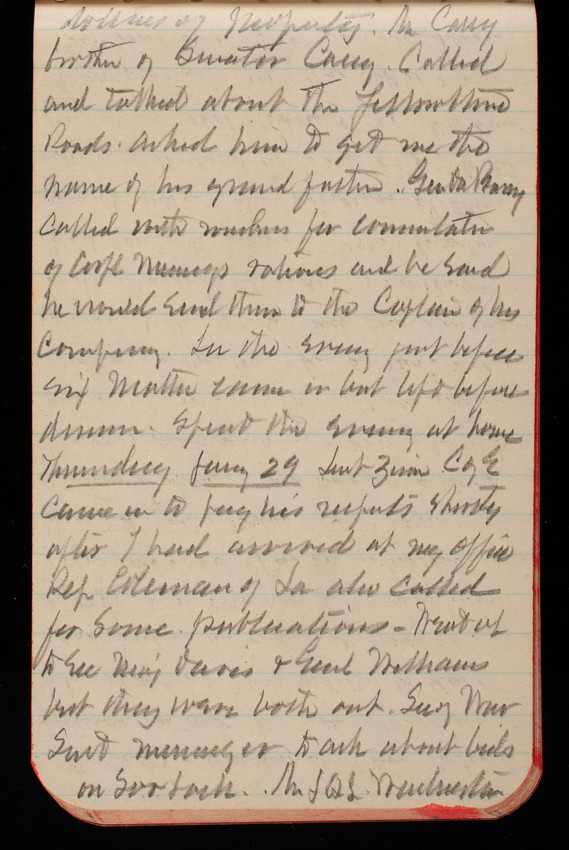 dollars of property. Mr Carey
brother of Senator Carey. Called
and talked about the Yellowstone
Roads. asked him to get me the
name of his grand father. Genl
Called with for commutation
of rations and he said
he would send them to the Captain of his
Company. In the evening just before
six came in but left before
dinner. Spent the evening at home
Thursday Jany 29 Lieut Co E
Came in to pay his respects shortly
after I had arrived at my office
Rep Coleman of La also called
for some publications - Went out
to see Davis & Genl Williams
but they were both out. Secy War
Sent messenger to ask about bids
on Sloop. Mr